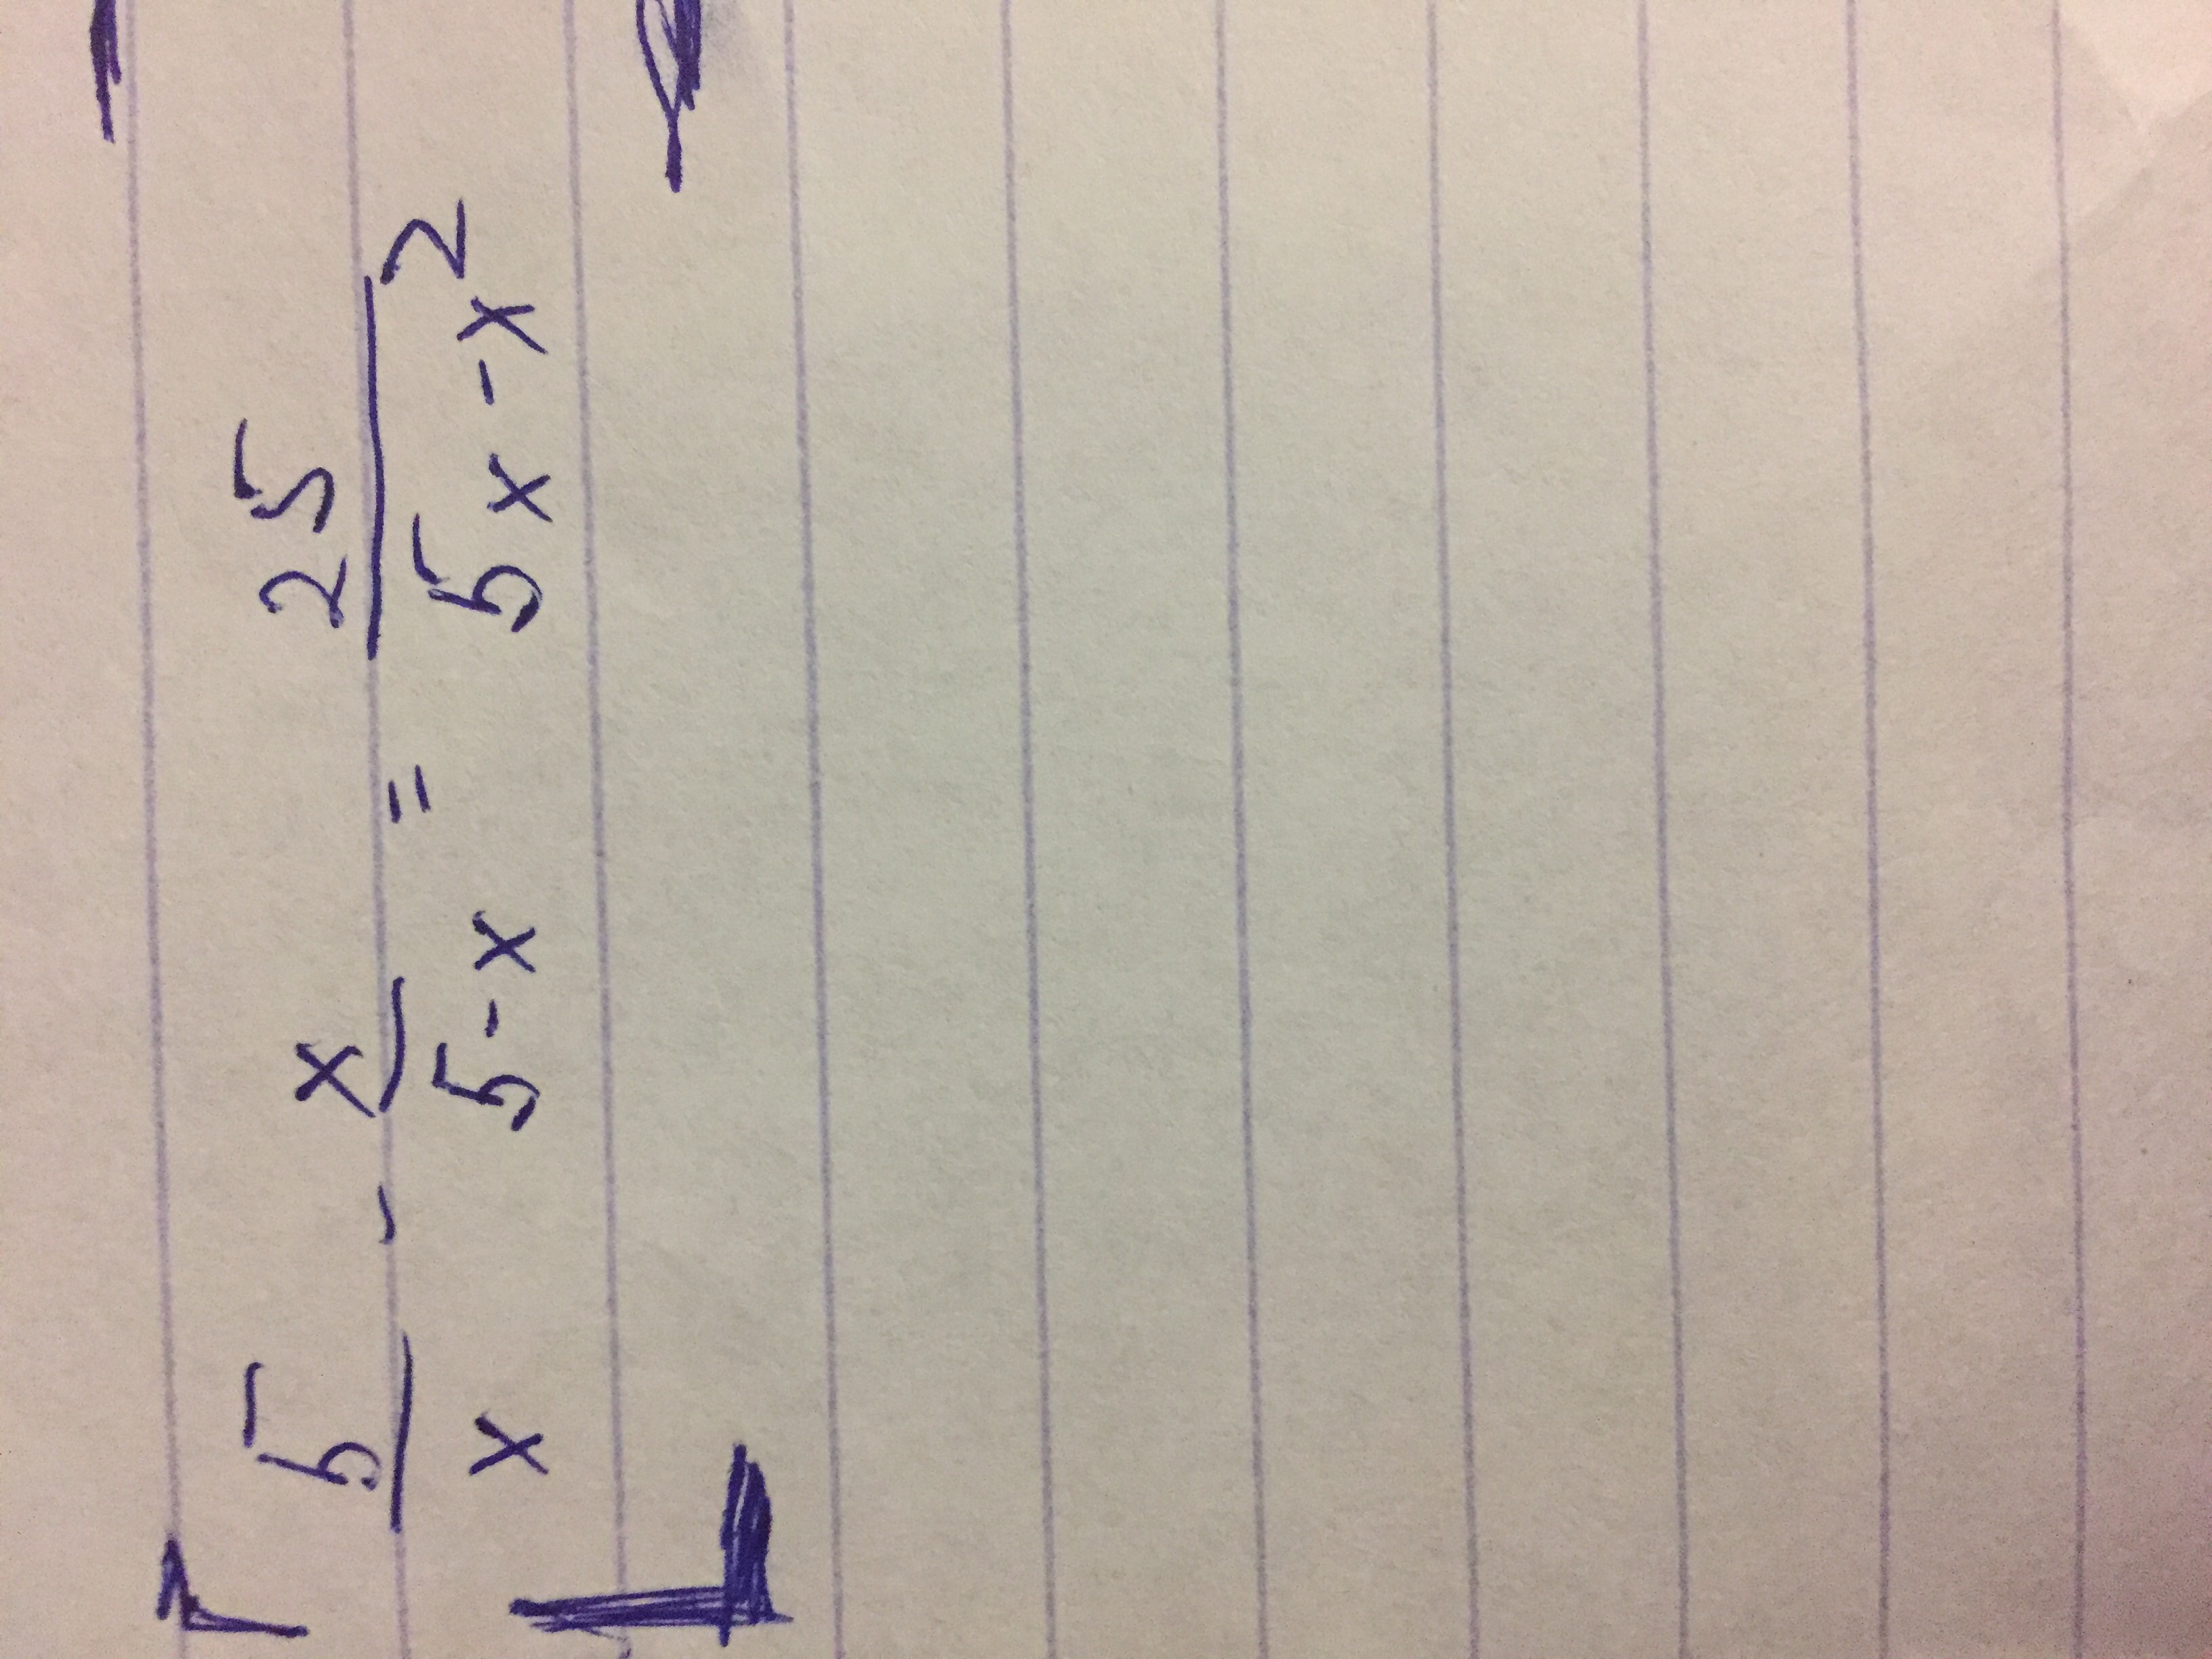 5/x - x/(5-x) = 25/(5x-x²)